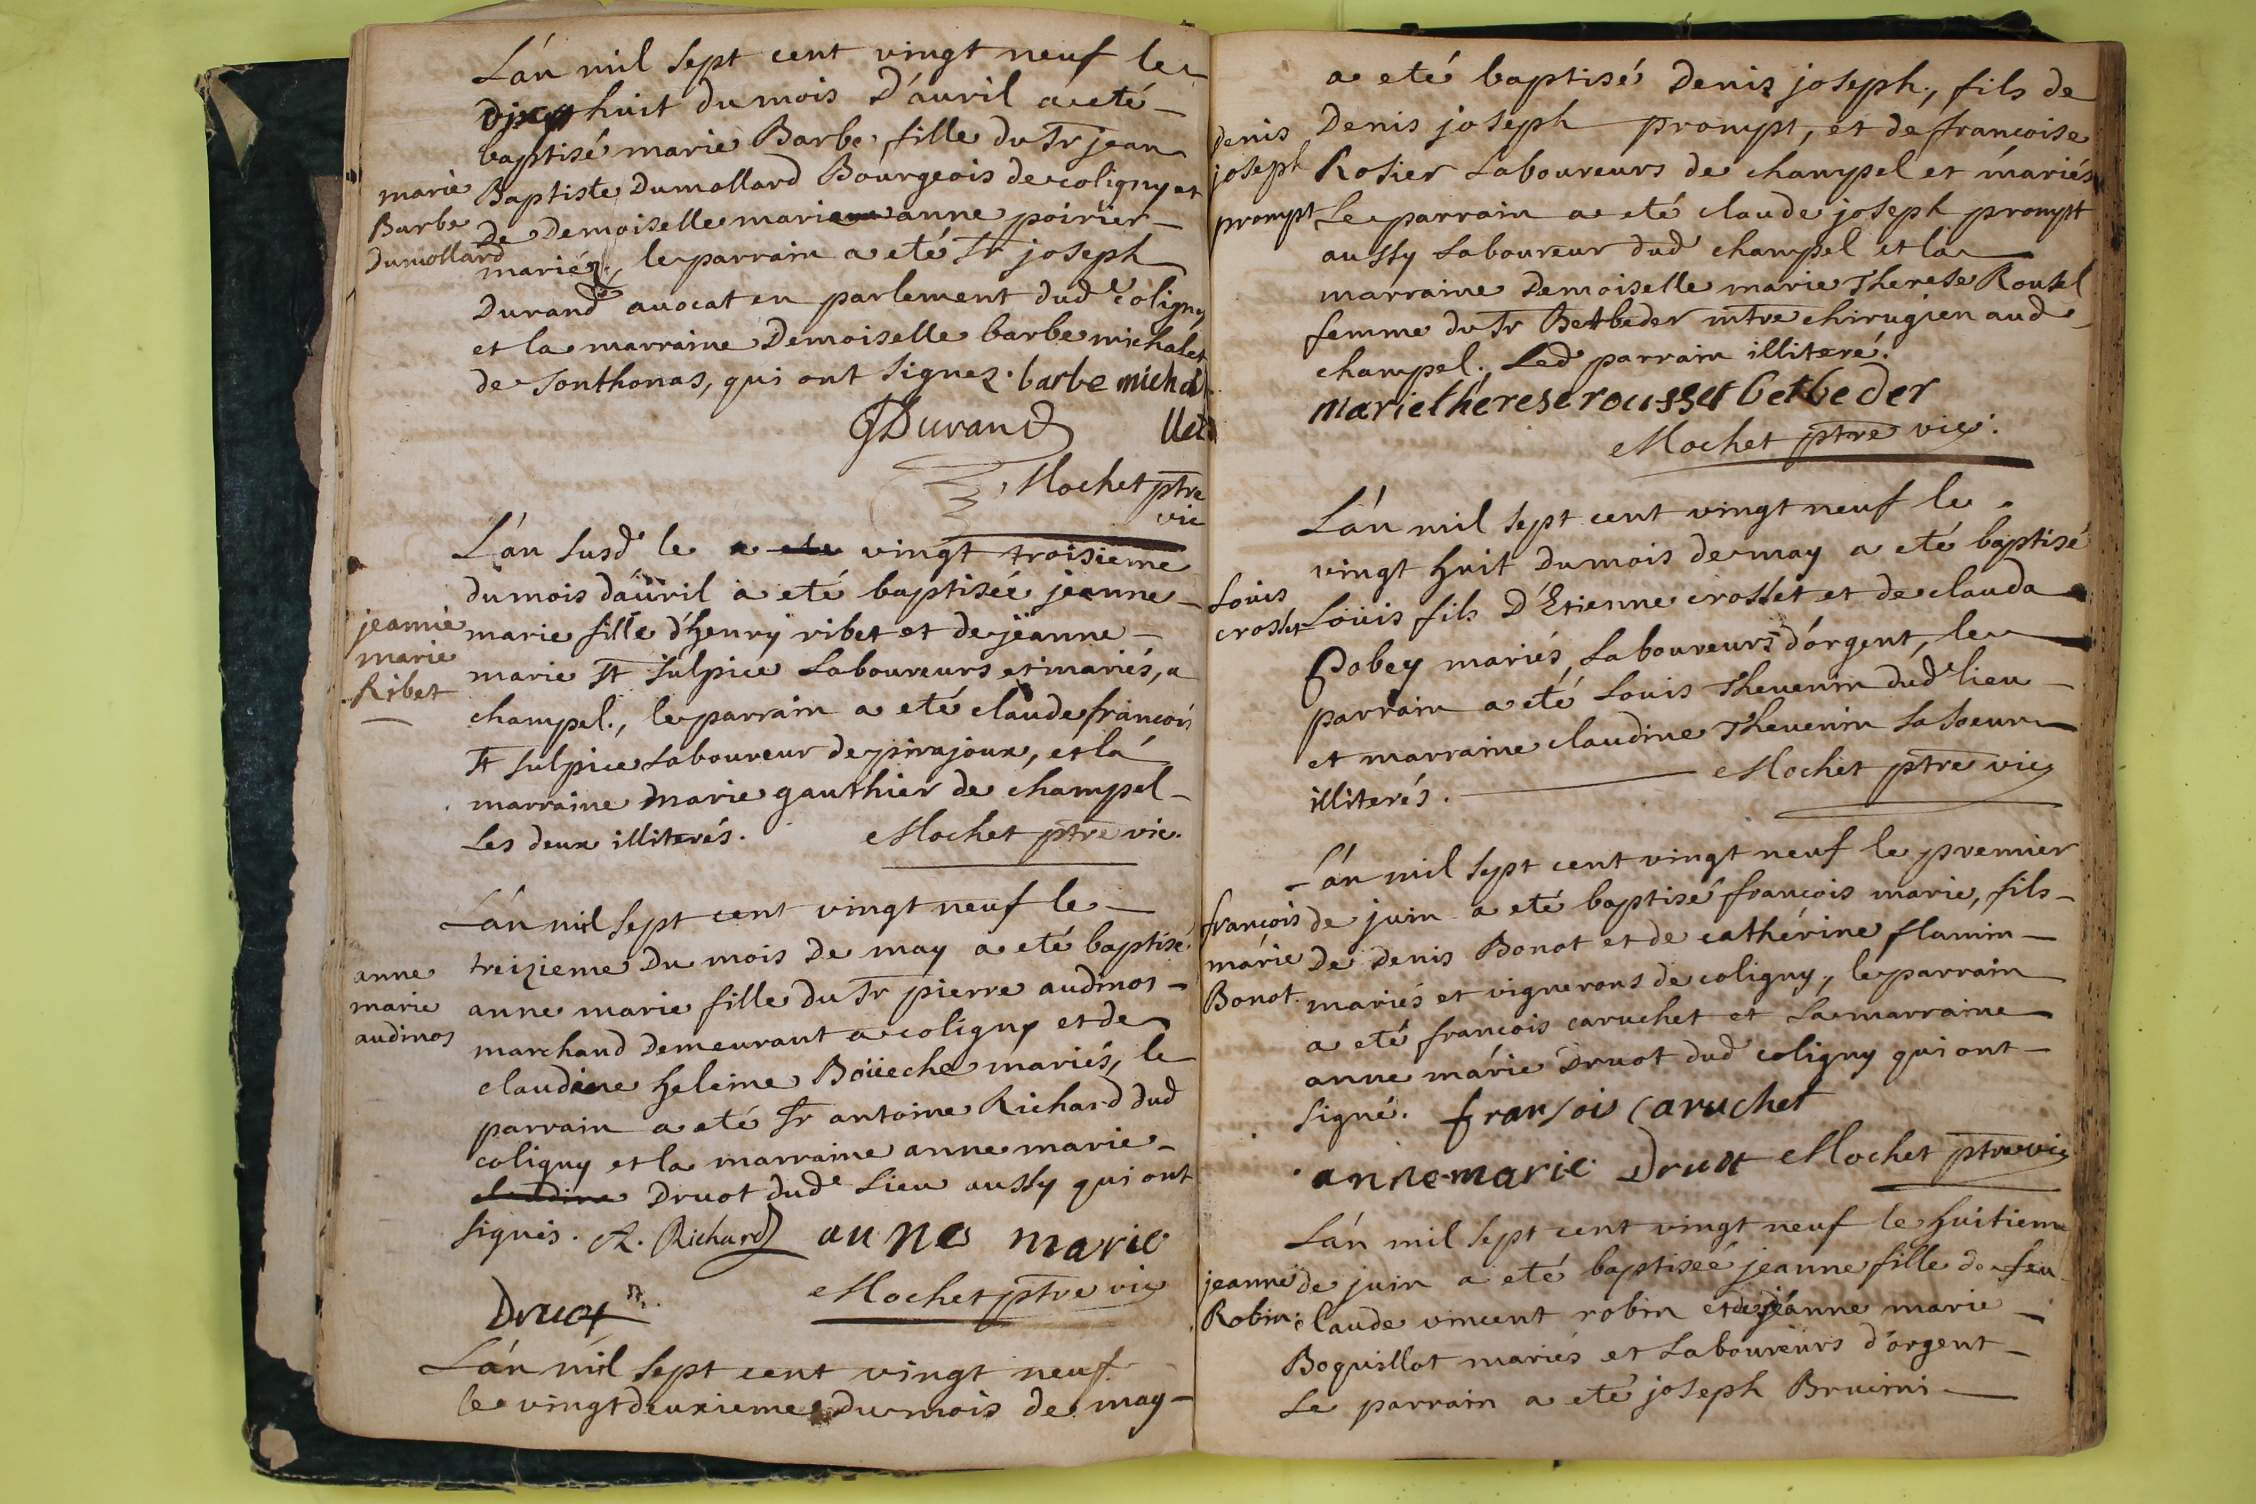 L'án mil sept cent vingt neuf le
dix huit du mois D'áuril a eté
baptisé marie Barbe, fille du Sr jean
marie
Barbe
Dumollard
Baptiste Dumollard Bourgeois de coligny et
De Demoiselle marie anne poirier
mariéz, le parrain a eté Sr joseph
Durand avocat en parlement dud coligny
et la marraine Demoiselle barbe michalet
de Sonthonas, qui ont signez. barbe micha
llet
JDurand
Mochet ptre
vic
L'án susd le a eté vingt troisieme
du mois d'áuril a eté baptiseé jeanne
jeanne
marie
Ribet
marie fille d'henry ribet et de jeanne
marie St sulpice Laboureurs et mariés, a
champel., le parrain a eté claude francois
St sulpice Laboureur de pirajoux, et lá
marraine marie gauthier de champel
Les deux illiterés. Mochet ptre vic.
L'án mil sept cent vingt neuf le
treizieme Du mois De may a eté baptisé
anne
marie
audinos
anne marie fille du Sr pierre audinos
marchand Demeurant a coligny et de
claudine heleine Boüeche mariés, le
parrain a eté Sr antoine Richard dud
coligny et la marraine anne marie
claudine Druot dud Lieu aussy qui ont
signés. A. Richard anne marie
Druot
Mochet ptre vic
L'án mil sept cent vingt neuf
le vingt deuxieme Du mois de may
a eté baptisé Denis joseph., fils de
Denis
joseph
prompt
Denis joseph prompt, et de francoise
Rosier Laboureurs de champel et máriés
Le parrain a eté claude joseph prompt
aussy Laboureur dud champel et la
marraine Demoiselle marie Therese Roussel
femme du Sr Betbeder mtre chirugien aud
champel. Led parrain illiteré.
marie thérese rousset betbeder
Mochet ptre vic.
L'án mil sept cent vingt neuf le
vingt huit Du mois de may a eté baptisé
Louis
crosset
Loüis fils D'Etienne crosset et de clauda
Pobey mariés, Laboureurs d'órgent, le
parrain a eté Louis Thevenin dud lieu
et marraine claudine Thevenin sa soeur
illiterés. Mochet ptre vic
L'án mil sept cent vingt neuf le premier
françois
márie
Bonot.
de juin a eté baptisé françois marie, fils
de Denis Bonot et de cathérine flamin
mariés et vignerons de coligny, le parrain
a eté francois caruchet et La marraine
anne márie Druot dud coligny qui ont
signé. fransois caruchet
anne marie Druot Mochet ptre vic
L'án mil sept cent vingt neuf le huitieme
jeanne
Robin
de juin a eté baptiseé jeanne fille de feu
claude vincent robin et de jéanne marie
Boguillot mariés et Laboureurs d'órgent
Le parrain a eté joseph Bruimi